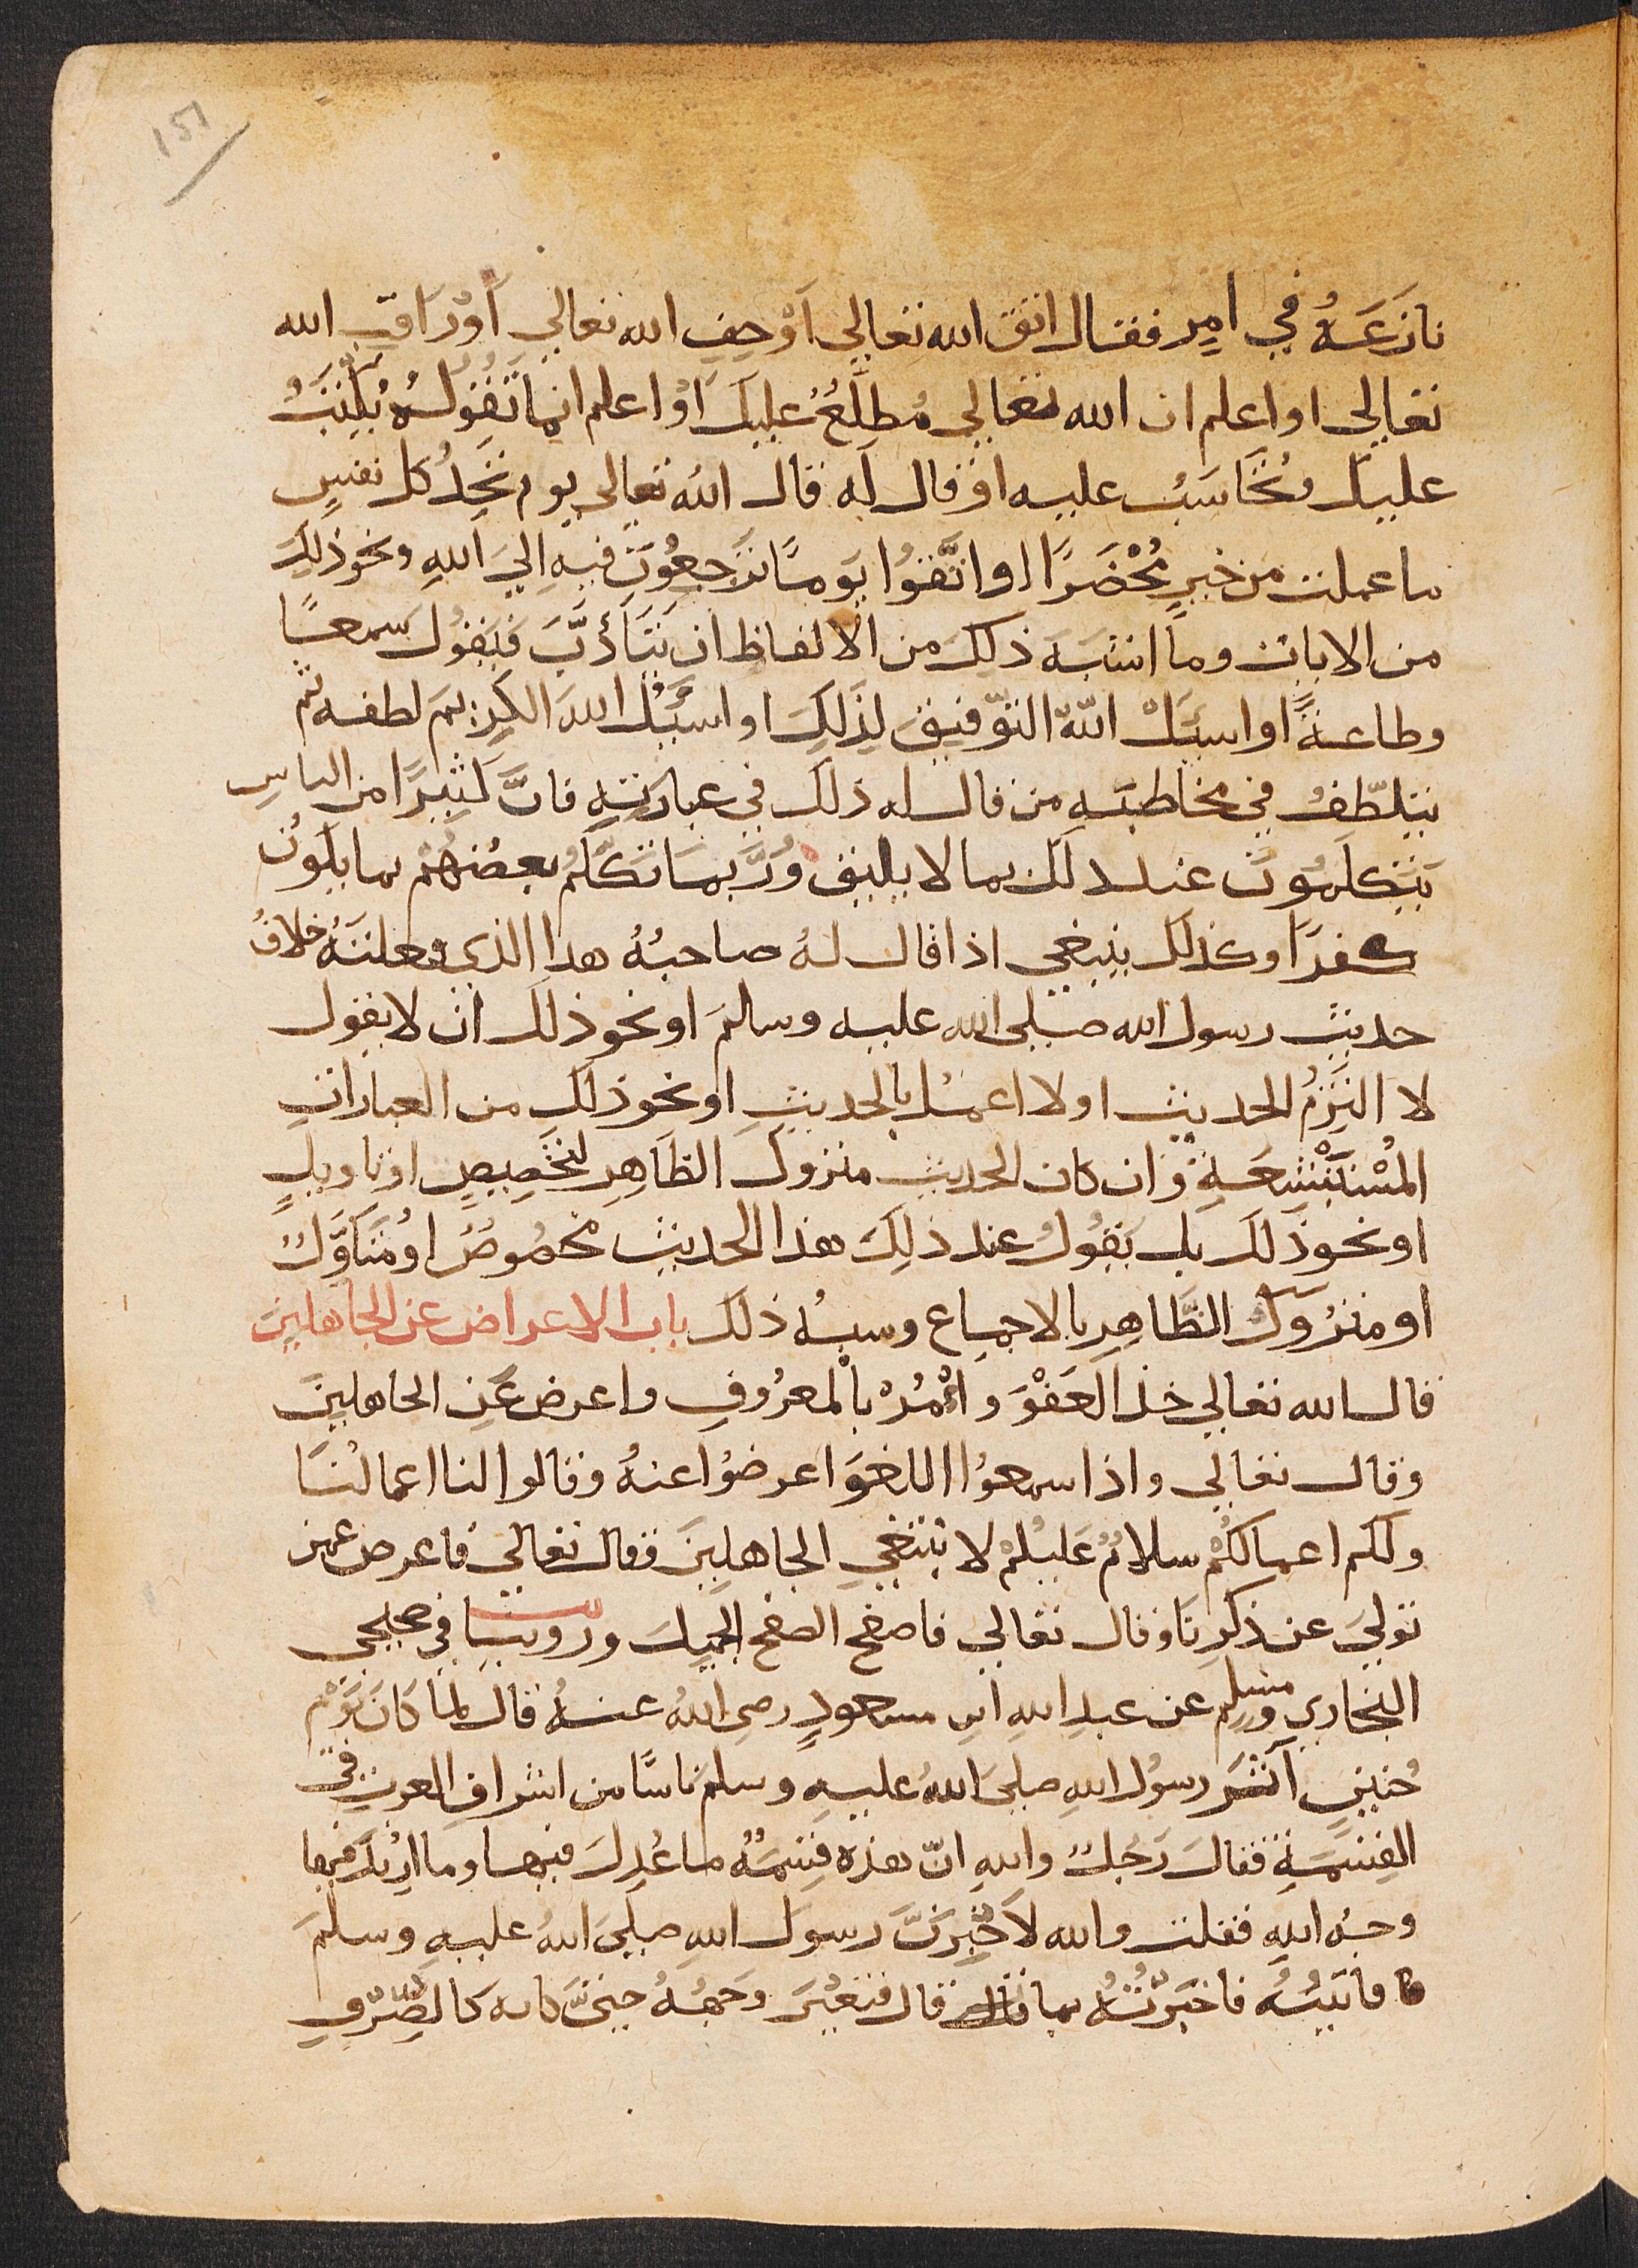 151
نازَعَهُ في امرٍ فقال اتق الله تعالي اَوْ خِفِ الله تعالي اَوْ رَاقِبِ الله
تعالي او اعلم ان الله تعالي مُطلِعُ عليكَ اَوْ اعلم ان ما تَقُولُهُ يُكتَبُ
عليك وتُحَاسَبُ عليه اَوْ قال له قال الله تعالى يوم تَجِدُ كل نفسٍ
ما عملت من خيرٍ مُحْضَرًا او اتَّقُوا يَومًا تُرجعُونَ فيهِ اِليَ اللهِ ونحو ذلِكَ
من الايات وما اشبَهَ ذلِكَ من الالفاظ ان يَتَأَدَّبَ فيَقُول سمعًا
وطاعةً او اسئلُ اللهَ التوّفيقَ لِذَلِكَ او اسئلُ اللهَ الكرِيمَ لطفه ثم
يتلطّفُ في مخاطبَهِ من قال له ذلك في عبارَتِهِ فانَّ كَثِيرًا من الناسِ
يَتَكلمُونَ عند ذلك بما لا يليق ورُبَّمَا تَكَلَّمُ بعضهُمْ بما يكوُن
كفرًا وكذلك ينبغي اذا قال لهُ صاحبُهُ هذا الذي فعلتَهُ خلافُ
حديثِ رسول الله صلي الله عليه وسلمَ او نحو ذلك ان لا يقول
لا التَزِمُ الحديث او لا اعملُ بالحديثِ او نحو ذلك من العبارات
المُسْتَبْشَعَةِ وان كان الحديث متروك الظَاهِرِ لتخصِيصٍ او تاويلٍ
او نحو ذلك بل يَقُولُ عند ذلِكَ هذا الحديث مخصُوصٌ او مُتَاوَّلٌ
او متروكُ الظَّاهِرِ بالاجماع وشبهُ ذلك باب الاعراض عن الجاهلينَ
قال الله تعالي خذ العَفْوَ وَأْمُرْ بالمعرُوفِ واعرض عَنِ الجاهلينَ
وقال تعالي واذا سمعُوا اللغوَ اعرضُوا عنهُ وقالوا لنا اعمالُنَا
ولكم اعمالكُمْ سلامٌ عَليكُمْ لا نبتغي الجاهلِينَ وقال تعالي فاعرض عن من
تولىَ عن ذكرِنَا وقال تعالي فاصفح الصفح الجميلَ وروينا في صحيحي
البخاري ومسلِم عن عبدِ اللهِ ابن مسعودٍ رضي اللهُ عنهُ قال لما كَانَ يَوْمُ
حُنينٍ آثَرَ رسُولُ اللهِ صلي اللهُ عليهِ وسلمَ ناسًا من اشرافِ العربِ في
القِسْمَةِ فقالَ رَجُلٌ واللهِ انّ هذِه قِسمَةٌ ما عُدِلَ فيها وما اُرِيدَ فيها
وجهُ اللهِ فقلت والله لاَخْبِرَنَّ رسولَ اللهِ صلىَ اللهُ عليهِ وسلمَ
فاتيتُهُ فاخبَرتُهُ بما قال قال فتغيَّرَ وَجهُهُ حتىَّ كانه كالصِّرْفِ